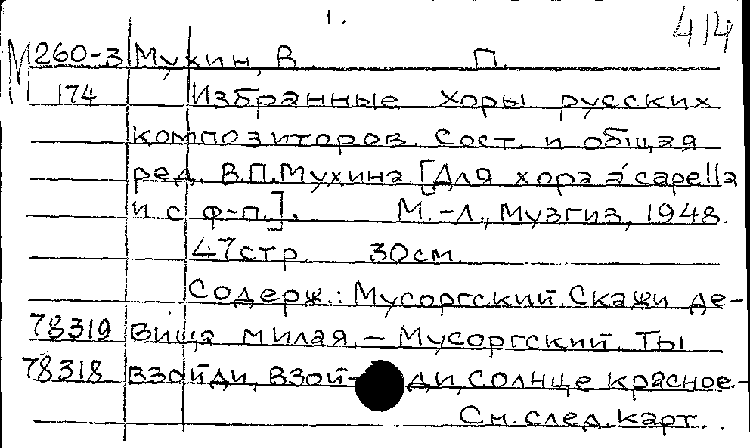 1.
414
М 260-3 Мухин, В. П.
174 Избранные хоры русских
композиторов. Сост. и общая
ред. В.П.Мухина [Для хора a'capella
и с ф-п.]. М.-Л., Музгиз, 1948.
47стр. 30см
Содерж.: Мусоргский. Скажи де-
78319 вица милая. – Мусоргский. Ты
78318 взойди, взой- ди, солнце красное.-
См. след. карт.